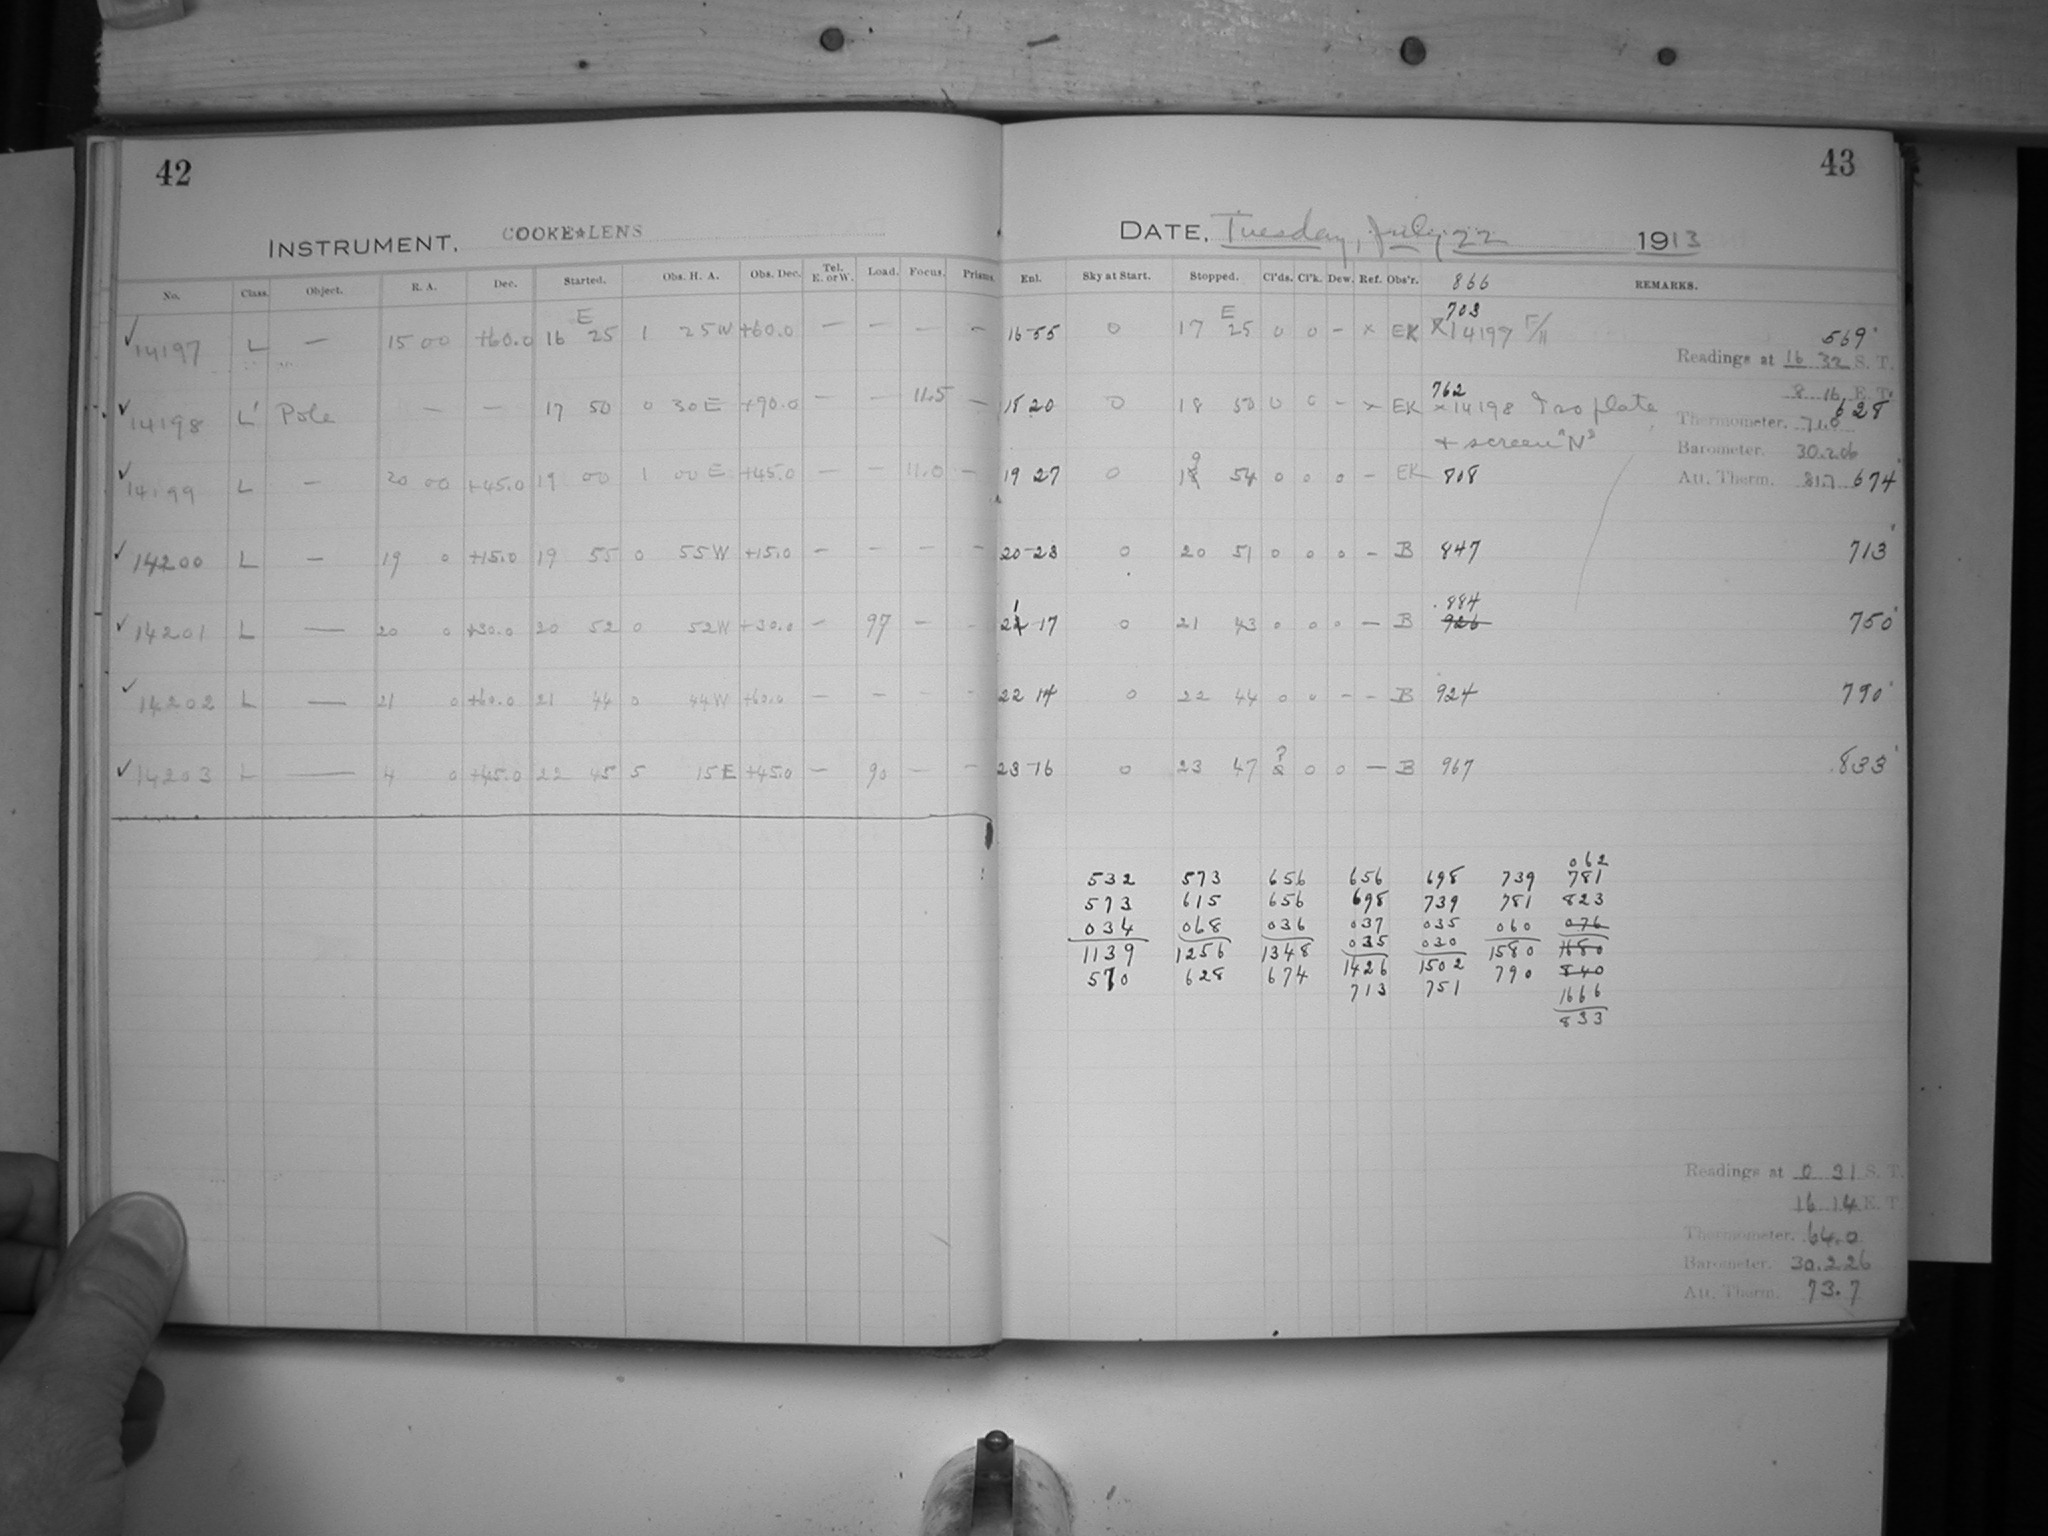 42
INSTRUMENT, COOKE★LENS
No. Class. Object. R. A. Dec. Started. Obs. H. A. Obs. Dec. Tel. E. or W. Load. Focus. Prisms.
14197 L — 15 00 +60.0 16 E 25 1 25 W +60.0 — — — —
14198 L' Pole — — 17 50 0 30 E +90.0 — — 11.5 —
14199 L — 20 00 +45.0 19 00 1 00 E +45.0 — — 11.0 —
14200 L — 19 0 +15.0 19 55 0 55 W +15.0 — — — —
14201 L — 20 0 +30.0 20 52 0 52 W +30.0 — 97 — —
14202 L — 21 0 +60.0 21 44 0 44 W +60.0 — — — —
14203 L — 4 0 +45.0 22 45 5 15 E +45.0 — 90 — —
43
DATE, Tuesday, July 22 1913
Enl. Sky at Start. Stopped. Cl'ds. Cl'k. Dew. Ref. Obs'r. 866 REMARKS.
703
16-55 0 17 E 25 0 0 - x EK x 14197 569
Readings at 16 32 S. T.
8 16 E. T.
762
18 20 0 18 50 0 0 - x EK x 14198 Iso plate 628
+ screen "N"
Thermometer. 71.0
Barometer. 30.206
19 27 0 19 54 0 0 0 - EK 808 674
Att. Therm. 81.7
20-23 0 20 51 0 0 0 - B 847 713
884
21 17 0 21 43 0 0 0 - B 926 750
22 14 0 22 44 0 0 - - B 924 790
23-16 0 23 47 ? 2 0 0 - B 967 833
062
532 573 656 656 698 739 781
573 615 656 698 739 781 823
034 068 036 037 035 060 076
1139 1256 1348 035 030 1580 1680
570 628 674 1426 1502 790 840
713 751 1666
833
Readings at 0 31 S. T.
16 14 E. T.
Thermometer. 64.0
Barometer. 30.226
Att. Therm. 73.7